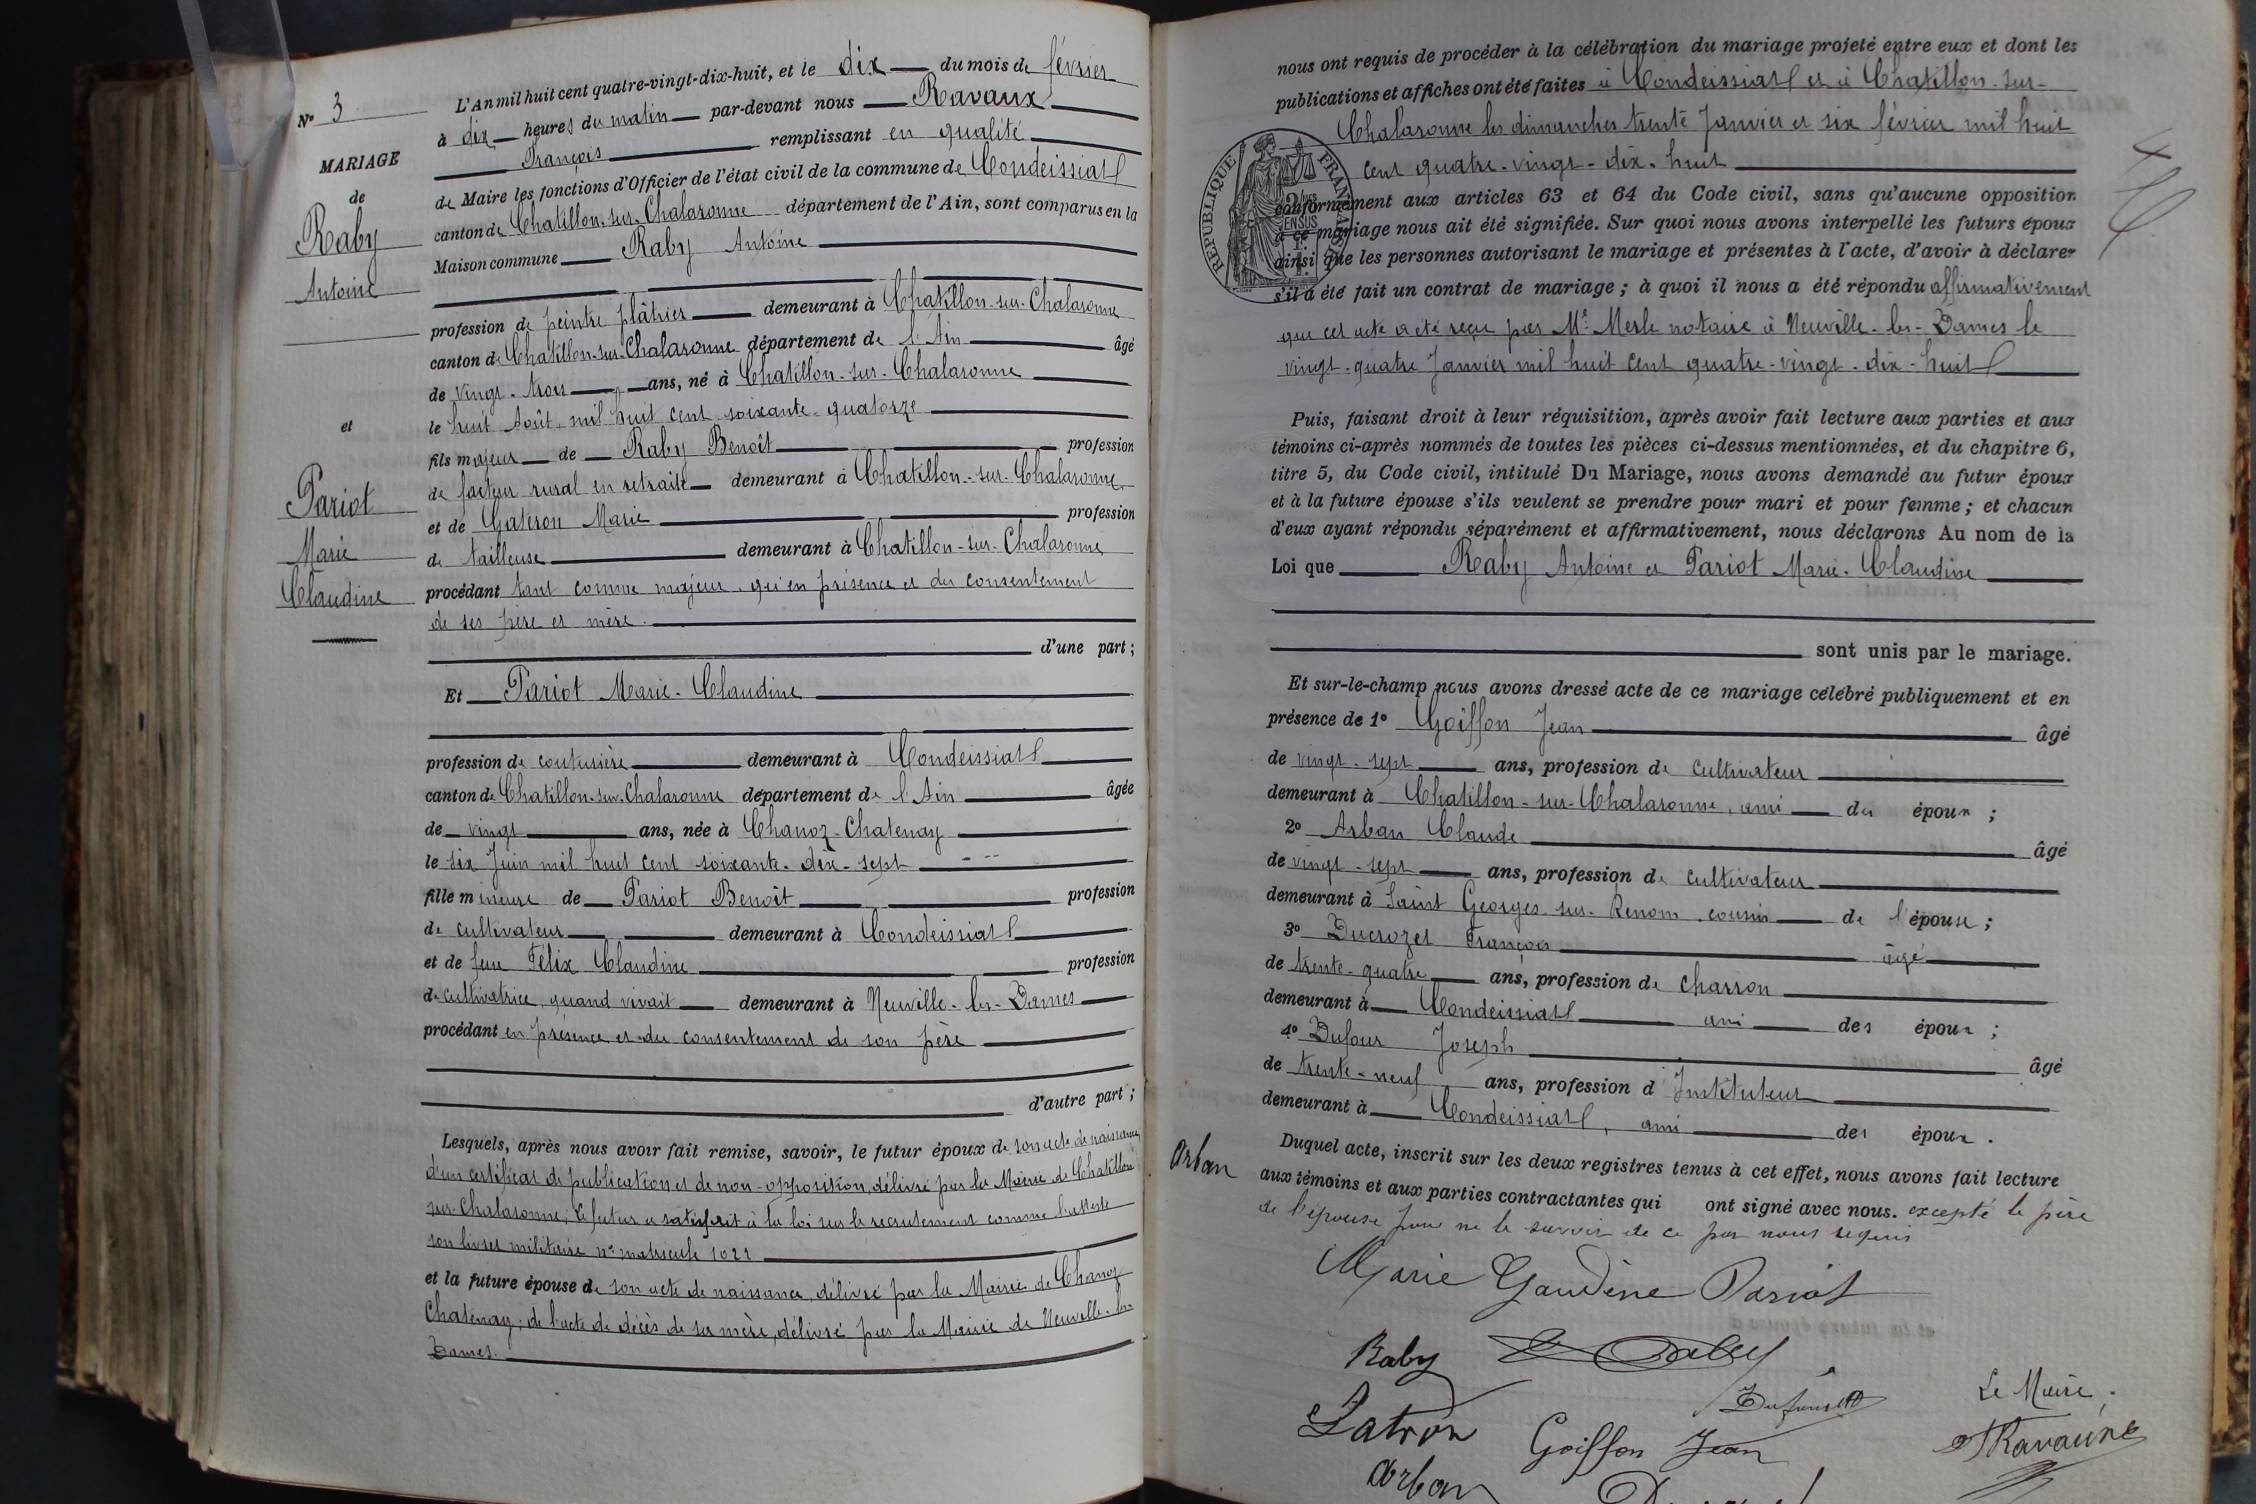 N° 3
MARIAGE
de
Raby
Antoine
et
Pariot
Marie
Claudine
L'An mil huit cent quatre-vingt-dix-huit, et le dix du mois de février
à dix heures du matin par-devant nous Ravaux
François remplissant en qualité
de Maire les fonctions d'Officier de l'état civil de la commune de Condeissiat
canton de Chatillon-sur-Chalaronne département de l'Ain, sont comparus en la
Maison commune Raby Antoine
profession de peintre plâtrier demeurant à Chatillon-sur-Chalaronne
canton de Chatillon-sur-Chalaronne département de l'Ain âgé
de vingt-trois ans, né à Chatillon-sur-Chalaronne
le huit Août mil huit cent soixante-quatorze
fils majeur de Raby Benoît profession
de facteur rural en retraite demeurant à Chatillon-sur-Chalaronne
et de Gateron Marie profession
de tailleuse demeurant à Chatillon-sur-Chalaronne
procédant tant comme majeur qu'en présence et du consentement
de ses père et mère.
d'une part ;
Et Pariot Marie-Claudine
profession de couturière demeurant à Condeissiat
canton de Chatillon-sur-Chalaronne département de l'Ain âgée
de vingt ans, née à Chanoz-Chatenay
le six Juin mil huit cent soixante-dix-sept
fille mineure de Pariot Benoît profession
de cultivateur demeurant à Condeissiat
et de feue Félix Claudine profession
de cultivatrice quand vivait demeurant à Neuville-les-Dames
procédant en présence et du consentement de son père
d'autre part ;
Lesquels, après nous avoir fait remise, savoir, le futur époux de son acte de naissance,
d'un certificat de publication et de non-opposition, délivré par la Mairie de Chatillon
sur-Chalaronne ; le futur a satisfait à la loi sur le recrutement comme l'atteste
son livret militaire n° matricule 1021
et la future épouse de son acte de naissance, délivré par la Mairie de Chanoz
Chatenay ; de l'acte de décès de sa mère, délivré par la Mairie de Neuville-les-
Dames.
nous ont requis de procéder à la célébration du mariage projeté entre eux et dont les
publications et affiches ont été faites à Condeissiat et à Chatillon-sur-
Chalaronne les dimanches trente Janvier et six février mil huit
cent quatre-vingt-dix-huit
RÉPUBLIQUE FRANÇAISE
conformément aux articles 63 et 64 du Code civil, sans qu'aucune opposition
à ce mariage nous ait été signifiée. Sur quoi nous avons interpellé les futurs époux
ainsi que les personnes autorisant le mariage et présentes à l'acte, d'avoir à déclarer
s'il a été fait un contrat de mariage ; à quoi il nous a été répondu affirmativement
que cet acte a été reçu par Me Merle notaire à Neuville-les-Dames le
vingt-quatre Janvier mil huit cent quatre-vingt-dix-huit
Puis, faisant droit à leur réquisition, après avoir fait lecture aux parties et aux
témoins ci-après nommés de toutes les pièces ci-dessus mentionnées, et du chapitre 6,
titre 5, du Code civil, intitulé Du Mariage, nous avons demandé au futur époux
et à la future épouse s'ils veulent se prendre pour mari et pour femme ; et chacun
d'eux ayant répondu séparément et affirmativement, nous déclarons Au nom de la
Loi que Raby Antoine et Pariot Marie-Claudine
sont unis par le mariage.
Et sur-le-champ nous avons dressé acte de ce mariage célébré publiquement et en
présence de 1° Goiffon Jean âgé
de vingt-sept ans, profession de cultivateur
demeurant à Chatillon-sur-Chalaronne, ami des époux ;
2° Arban Claude âgé
de vingt-sept ans, profession de cultivateur
demeurant à Saint Georges-sur-Renom, cousin de l'épouse ;
3° Ducrozet François âgé
de trente-quatre ans, profession de charron
demeurant à Condeissiat ami des époux ;
4° Dufour Joseph âgé
de trente-neuf ans, profession d'Instituteur
demeurant à Condeissiat, ami des époux.
Duquel acte, inscrit sur les deux registres tenus à cet effet, nous avons fait lecture
Arban
aux témoins et aux parties contractantes qui ont signé avec nous. excepté le père
de l'épouse pour ne le savoir de ce par nous requis
Marie Gaudine Pariot
Raby Raby
Dufour
Le Maire,
Goiffon Jean
Ravaux
Arban